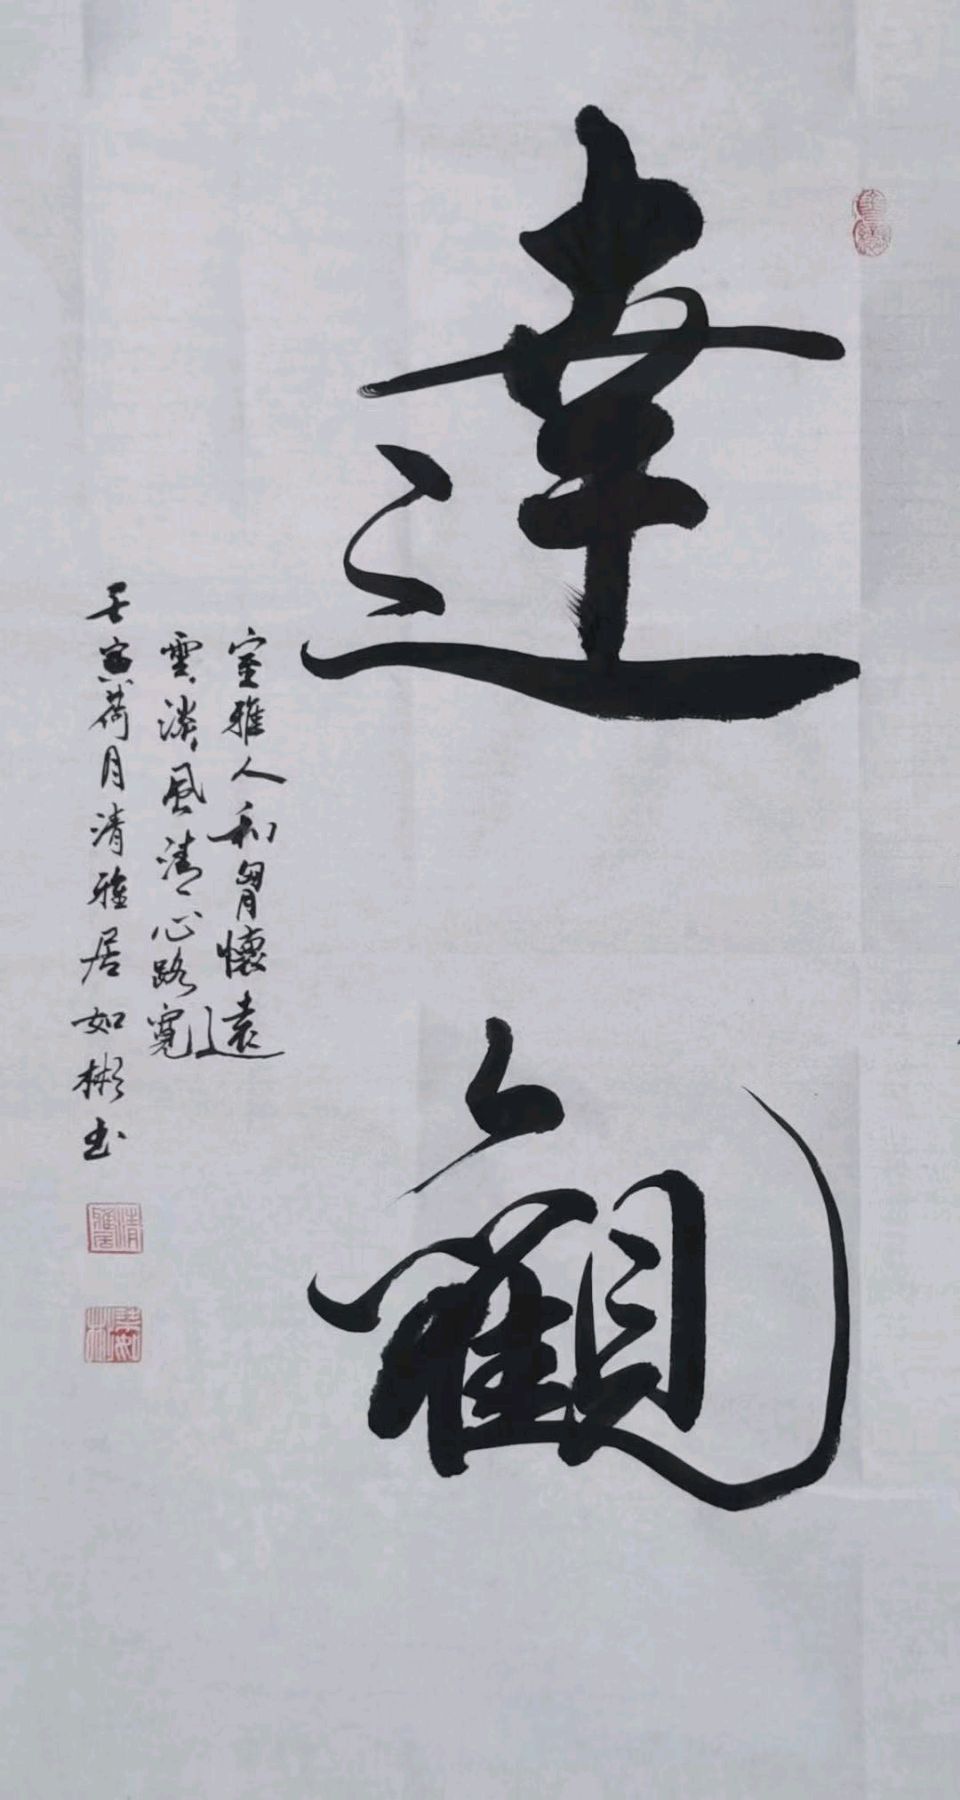 達觀
室雅人和胷懷遠
雲淡風清心路寬
壬寅荷月清雅居如彬书
清雅居